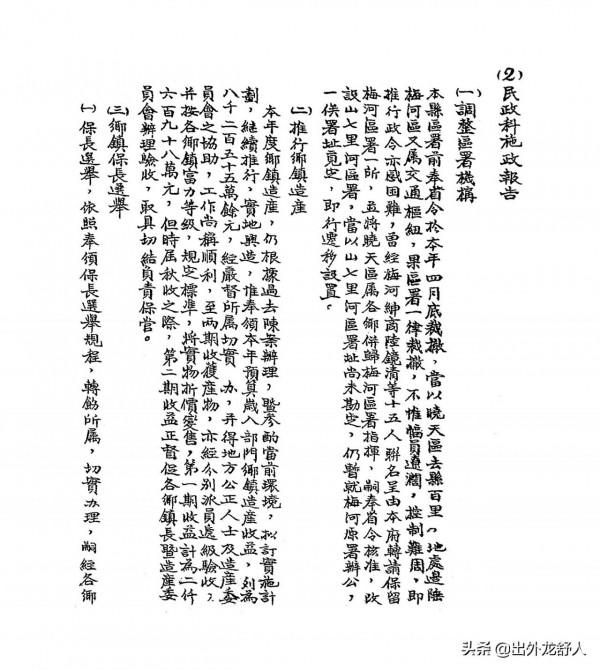 (2)民政科施政報告
(一)調整區署機構
本縣區署前奉省令於本年四月底裁撤，當以曉天區去縣百里，地處邊陲
梅河區又屬交通樞紐，果區署一律裁撤，不惟幅員遼濶，控制難周，即
推行政令亦感困難，曾經梅河紳商陸鏡清等十五人聯名呈由本府轉請保留
梅河區署一所，並將曉天區属各鄉併歸梅河區署指揮，嗣奉省令核准，改
設山七里河區署，當以山七里河區署址尚未勘定，仍暫就梅河原署辦公，
一俟署址覓定，即行遷移設置。
(二)推行鄉鎮造產
本年度鄉鎮造產，仍根據過去陳案辦理，暨參酌當前環境，擬訂實施計
劃，継續推行，實地興造，惟奉領本年預算歲入部門鄉鎮造產收益，列為
八千二百五十五萬餘元，經嚴督所属切實 办，并得地方公正人士及造產委
員會之協助，工作尚稱順利，至两期收獲產物，亦經分别派員逐級驗收，
并按各鄉鎮富力等級，規定標準，將實物折價變售，第一期收益計為二仟
六百九十八萬元，但時届秋收之際，第二期收益正督促各鄉鎮長暨造產委
員會辦理驗收，取具切結負責保管。
(三)鄉鎮保長選舉
(一)保長選舉，依照奉頒保長選舉規程，轉飭所属，切實办理，嗣經各鄉
头条 @出外龙舒人